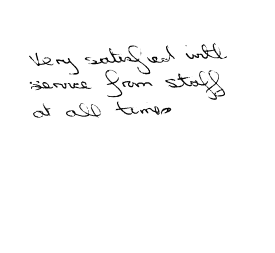 Very satisfied with
service from staff
at all times